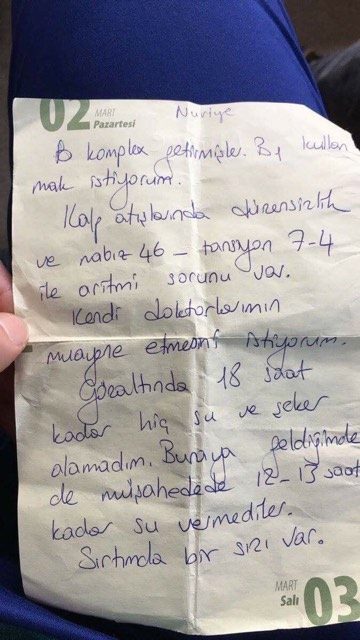 02 MART
Pazartesi
Nuriye
B komplex getirmişler. B1 kullan
mak istiyorum.
Kalp atışlarında düzensizlik
ve nabız 46 – tansiyon 7-4
ile aritmi sorunu var.
Kendi doktorlarımın
muayne etmesini istiyorum.
Gözaltında 18 saat
kadar hiç su ve şeker
alamadım. Buraya geldiğimde
de müşahedede 12-13 saat
kadar su vermediler.
Sırtımda bir sızı var.
MART
Salı 03